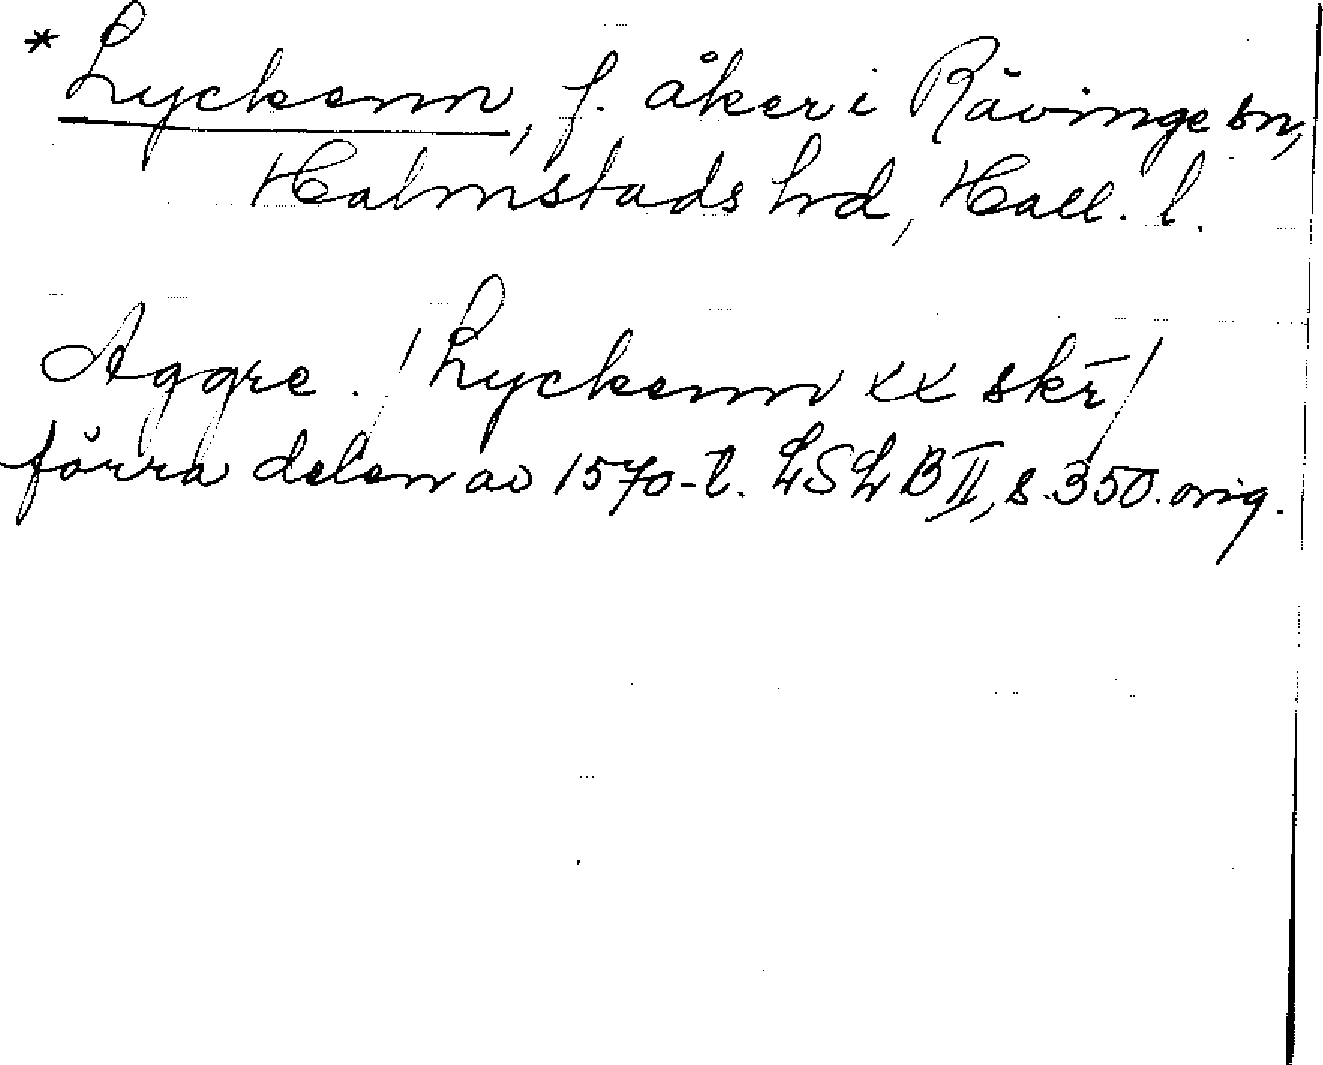 * Lyckenn, f. åker i Rävinge sn,
Halmstads hrd, Hall. l.
Aggre. / Lyckenn xx skr̄/
förra delen av 1570-t. LSLB II, s. 350. orig.